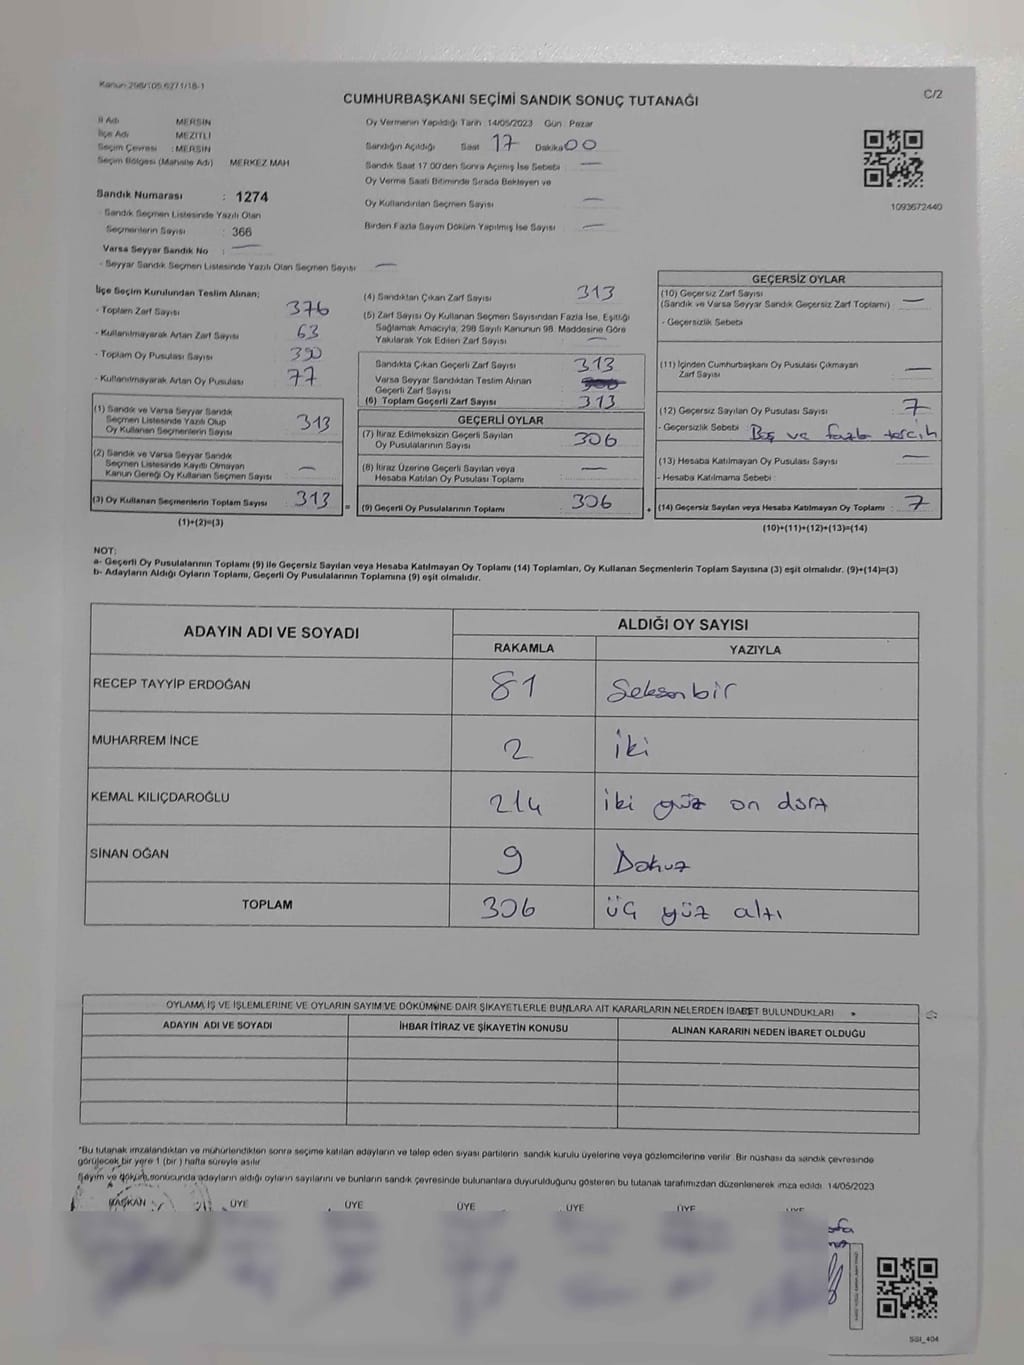 Kanun 298/105,6271/18-1
C/2
CUMHURBAŞKANI SEÇİMİ SANDIK SONUÇ TUTANAĞI
İl Adı MERSİN
İlçe Adı MEZİTLİ
Seçim Çevresi : MERSİN
Seçim Bölgesi (Mahalle Adı) MERKEZ MAH
Sandık Numarası : 1274
- Sandık Seçmen Listesinde Yazılı Olan
Seçmenlerin Sayısı : 366
Varsa Seyyar Sandık No : —
- Seyyar Sandık Seçmen Listesinde Yazılı Olan Seçmen Sayısı —
Oy Vermenin Yapıldığı Tarih :14/05/2023 Gün : Pazar
Sandığın Açıldığı Saat 17 Dakika 00
Sandık Saat 17:00'den Sonra Açılmış İse Sebebi : —
Oy Verme Saati Bitiminde Sırada Bekleyen ve
Oy Kullandırılan Seçmen Sayısı —
Birden Fazla Sayım Döküm Yapılmış İse Sayısı : —
1093672440
İlçe Seçim Kurulundan Teslim Alınan;
- Toplam Zarf Sayısı 376
- Kullanılmayarak Artan Zarf Sayısı 63
- Toplam Oy Pusulası Sayısı 390
- Kullanılmayarak Artan Oy Pusulası 77
(1) Sandık ve Varsa Seyyar Sandık
Seçmen Listesinde Yazılı Olup
Oy Kullanan Seçmenlerin Sayısı 313
(2) Sandık ve Varsa Seyyar Sandık
Seçmen Listesinde Kayıtlı Olmayan
Kanun Gereği Oy Kullanan Seçmen Sayısı : —
(3) Oy Kullanan Seçmenlerin Toplam Sayısı 313 =
(1)+(2)=(3)
(4) Sandıktan Çıkan Zarf Sayısı 313
(5) Zarf Sayısı Oy Kullanan Seçmen Sayısından Fazla İse, Eşitliği
Sağlamak Amacıyla, 298 Sayılı Kanunun 98. Maddesine Göre
Yakılarak Yok Edilen Zarf Sayısı —
Sandıkta Çıkan Geçerli Zarf Sayısı 313
Varsa Seyyar Sandıktan Teslim Alınan
Geçerli Zarf Sayısı
(6) Toplam Geçerli Zarf Sayısı 313
GEÇERLİ OYLAR
(7) İtiraz Edilmeksizin Geçerli Sayılan
Oy Pusulasının Sayısı 306
(8) İtiraz Üzerine Geçerli Sayılan veya
Hesaba Katılan Oy Pusulası Toplamı —
(9) Geçerli Oy Pusulalarının Toplamı 306 +
GEÇERSİZ OYLAR
(10) Geçersiz Zarf Sayısı
(Sandık ve Varsa Seyyar Sandık Geçersiz Zarf Toplamı) —
- Geçersizlik Sebebi
(11) İçinden Cumhurbaşkanı Oy Pusulası Çıkmayan
Zarf Sayısı —
(12) Geçersiz Sayılan Oy Pusulası Sayısı 7
- Geçersizlik Sebebi Boş ve fazla tercih
(13) Hesaba Katılmayan Oy Pusulası Sayısı —
- Hesaba Katılmama Sebebi :
(14) Geçersiz Sayılan veya Hesaba Katılmayan Oy Toplamı : 7
(10)+(11)+(12)+(13)=(14)
NOT:
a- Geçerli Oy Pusulalarının Toplamı (9) ile Geçersiz Sayılan veya Hesaba Katılmayan Oy Toplamı (14) Toplamları, Oy Kullanan Seçmenlerin Toplam Sayısına (3) eşit olmalıdır. (9)+(14)=(3)
b- Adayların Aldığı Oyların Toplamı, Geçerli Oy Pusulalarının Toplamına (9) eşit olmalıdır.
ADAYIN ADI VE SOYADI
ALDIĞI OY SAYISI
RAKAMLA YAZIYLA
RECEP TAYYİP ERDOĞAN 81 Seksenbir
MUHARREM İNCE 2 iki
KEMAL KILIÇDAROĞLU 214 iki yüz on dört
SİNAN OĞAN 9 Dokuz
TOPLAM 306 üç yüz altı
OYLAMA İŞ VE İŞLEMLERİNE VE OYLARIN SAYIM VE DÖKÜMÜNE DAİR ŞİKAYETLERLE BUNLARA AİT KARARLARIN NELERDEN İBARET BULUNDUKLARI
ADAYIN ADI VE SOYADI İHBAR İTİRAZ VE ŞİKAYETİN KONUSU ALINAN KARARIN NEDEN İBARET OLDUĞU
*Bu tutanak imzalandıktan ve mühürlendikten sonra seçime katılan adayların ve talep eden siyasi partilerin sandık kurulu üyelerine veya gözlemcilerine verilir. Bir nüshası da sandık çevresinde
görülecek bir yere 1 (bir ) hafta süreyle asılır.
Sayım ve döküm sonucunda adayların aldığı oyların sayılarını ve bunların sandık çevresinde bulunanlara duyurulduğunu gösteren bu tutanak tarafımızdan düzenlenerek imza edildi. 14/05/2023
BAŞKAN ÜYE ÜYE ÜYE ÜYE ÜYE ÜYE
SSI_404